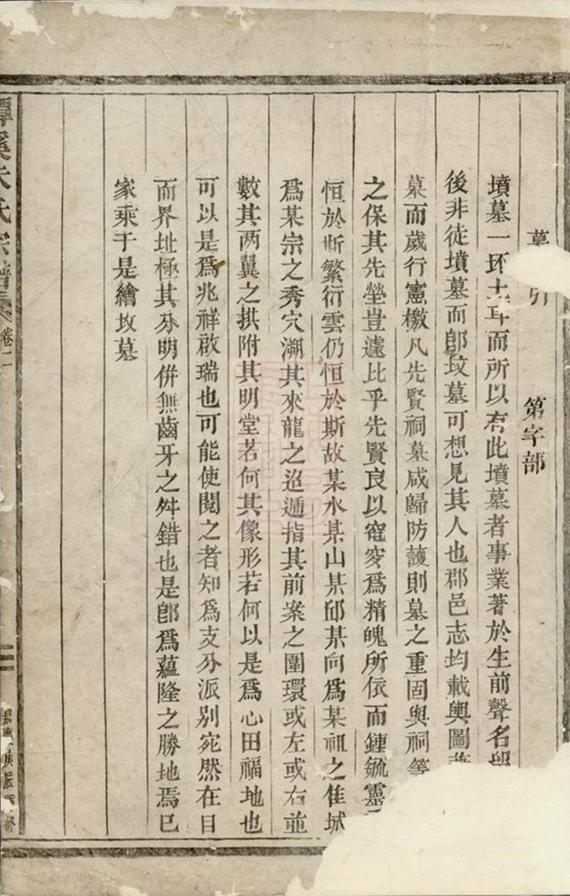 墓　引　第字部
墳墓一抔土耳而所以有此墳墓者事業著於生前聲名
後非徒墳墓而卽墳墓可想見其人也郡邑志均載輿圖
墓而歲行憲檄凡先賢祠墓咸歸防護則墓之重固與祠等
之保其先塋豈遽比乎先賢良以窀穸爲精魄所依而鍾毓靈
恒於斯繁衍雲仍恒於斯故某水某山某邱某向爲某祖之佳城
爲某宗之秀穴溯其來龍之迢遞指其前案之圍環或左或右並
數其两翼之拱附其明堂若何其像形若何以是爲心田福地也
可以是爲兆祥啟瑞也可能使閱之者知爲支分派別宛然在目
而界址極其分明併無齒牙之舛錯也是卽爲蘊隆之勝地焉已
家乘于是繪坟墓
氏宗譜
卷二
二